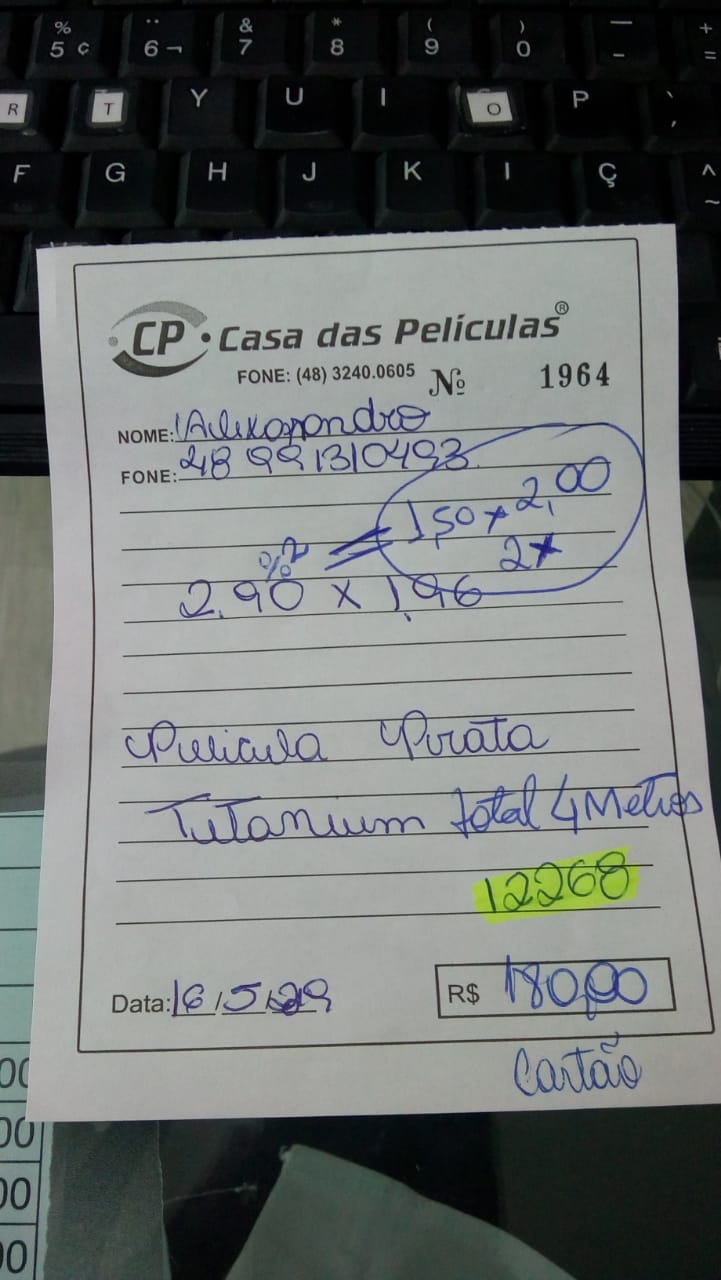 % & * ( ) — +
5 ¢ 6 ¬ 7 8 9 0 - =
R T Y U I O P ` ´
F G H J K l Ç ^ ~
CP • Casa das Películas®
FONE: (48) 3240.0605 Nº 1964
NOME: Alexsandro
FONE: 48 991310493
= 1,50 x 2,00
2x
2.90 x 1,96
Pelicula Prata
Titanium total 4 Metros
12268
Data: 16/5/ R$ 180,00
Cartão